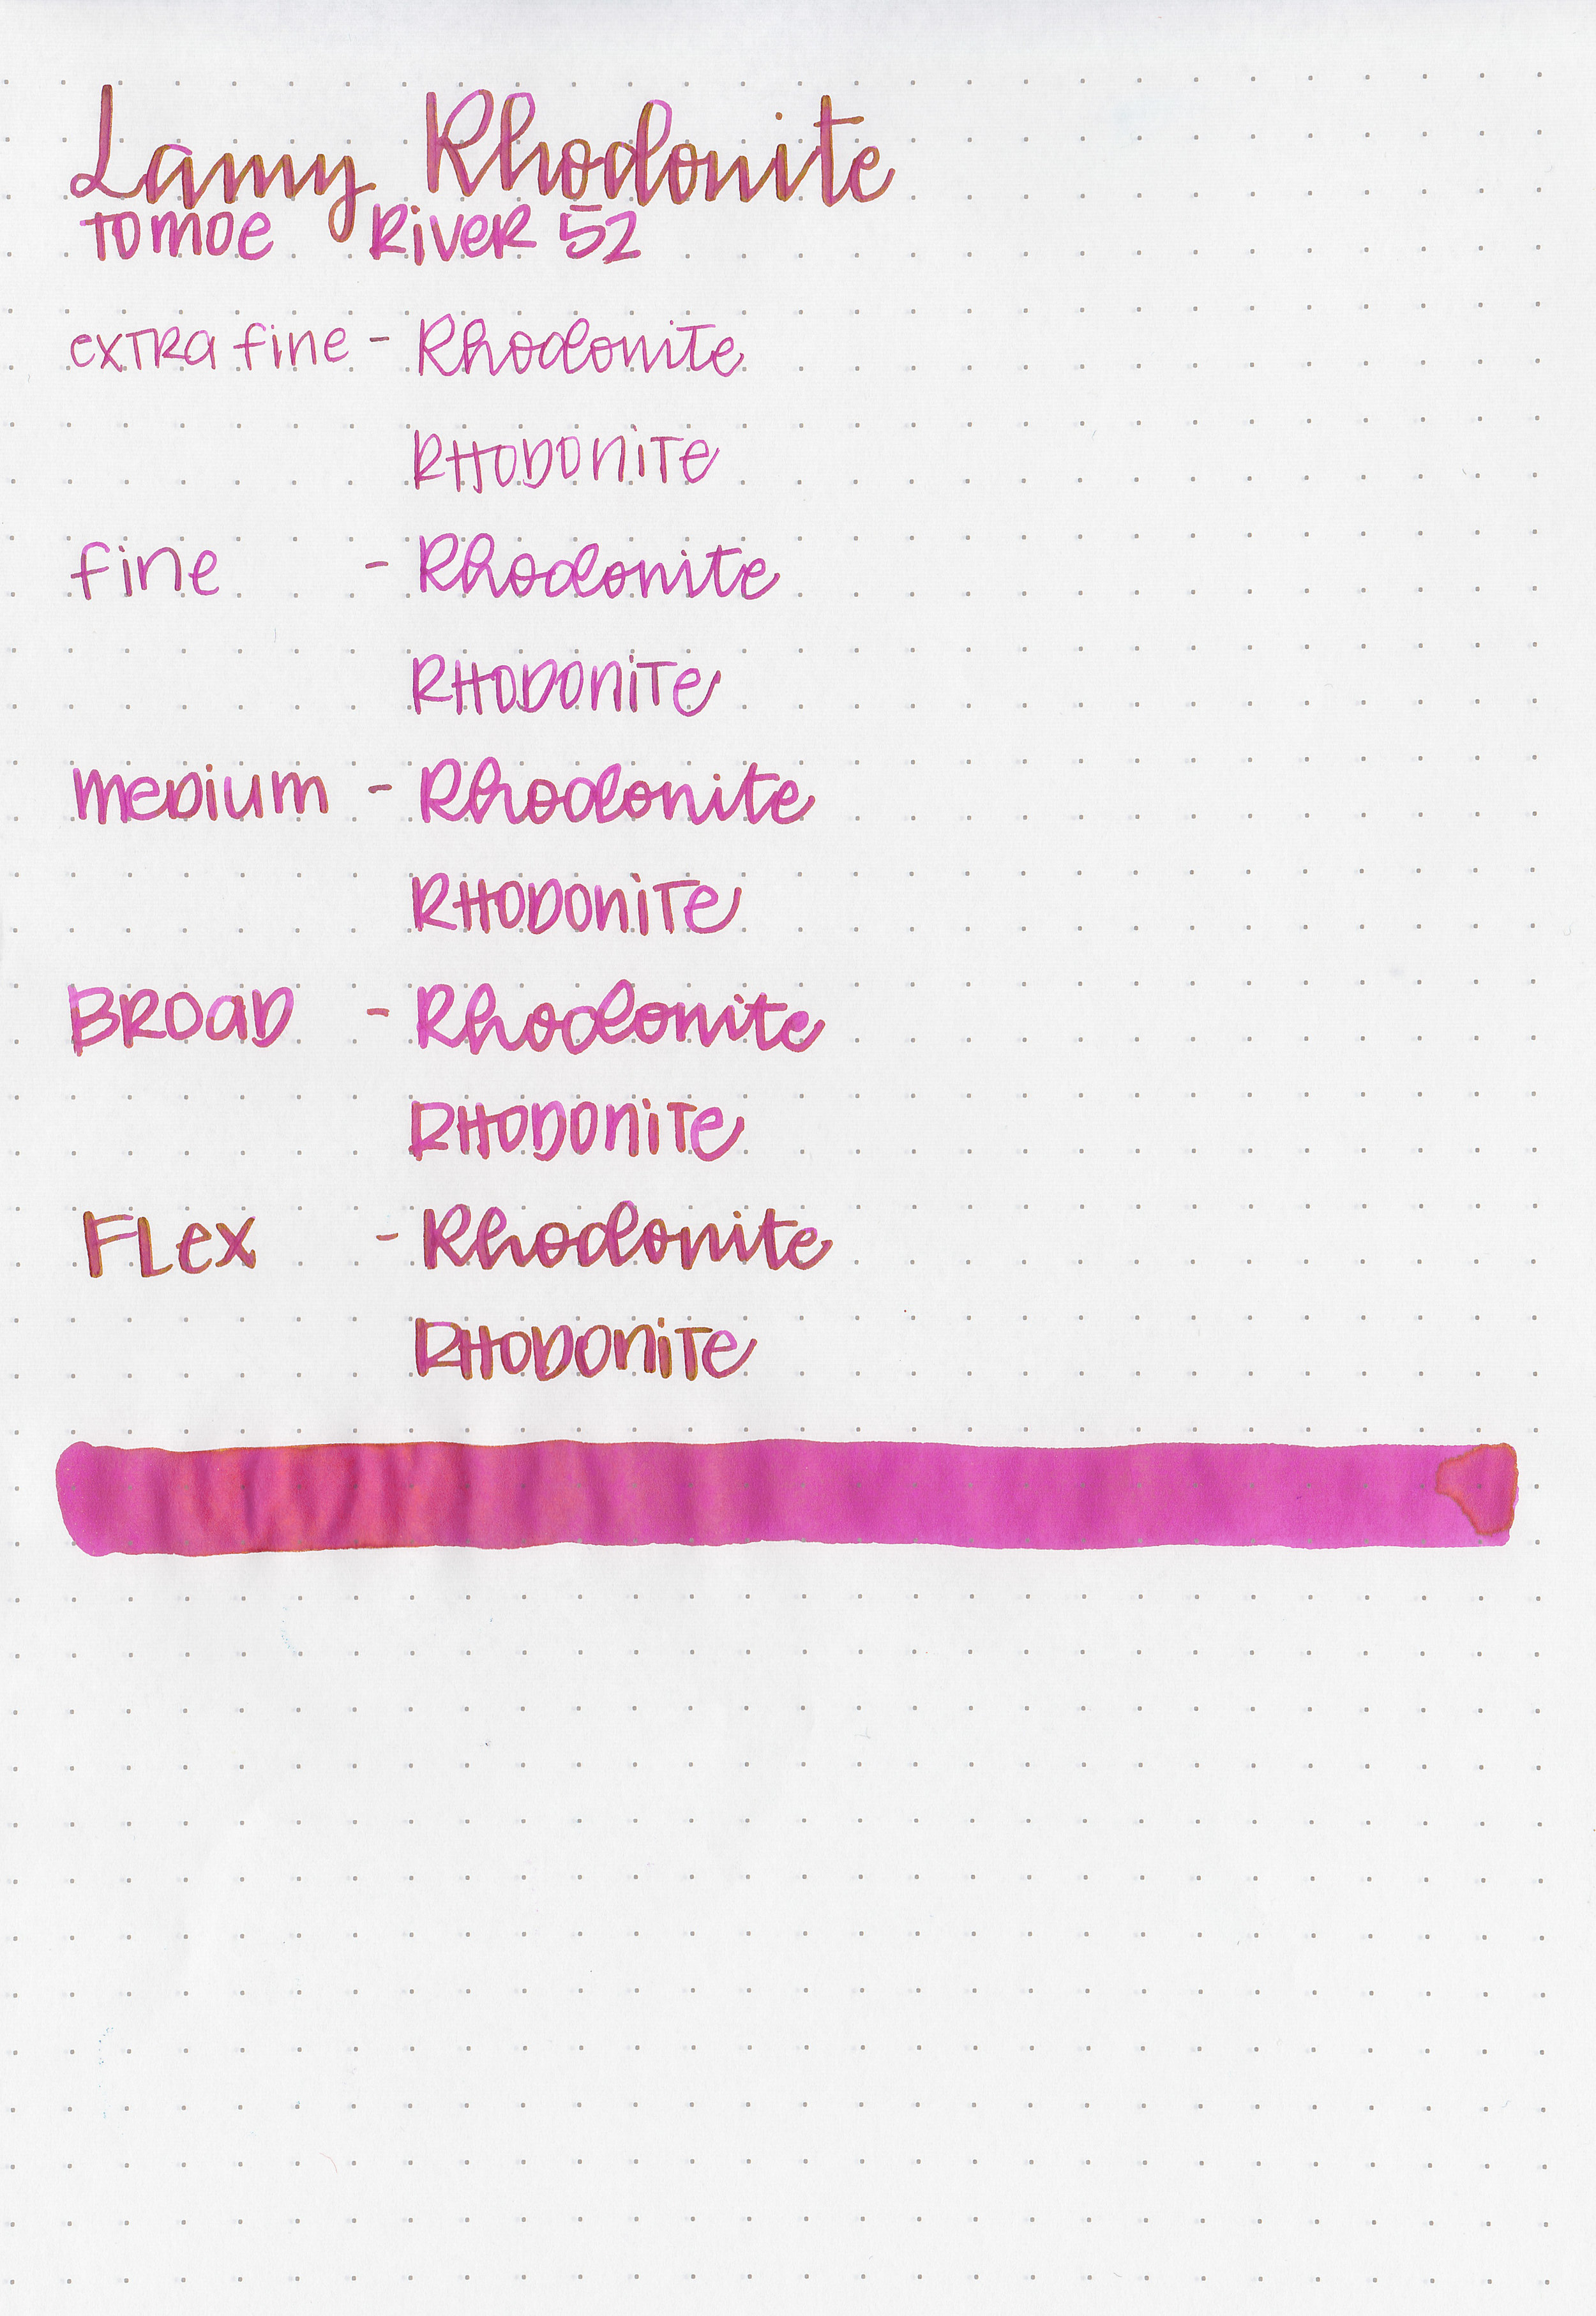 Lamy Rhodonite
Tomoe River 52
extra fine - Rhodonite
Rhodonite
fine - Rhodonite
Rhodonite
medium - Rhodonite
Rhodonite
Broad - Rhodonite
Rhodonite
Flex - Rhodonite
Rhodonite